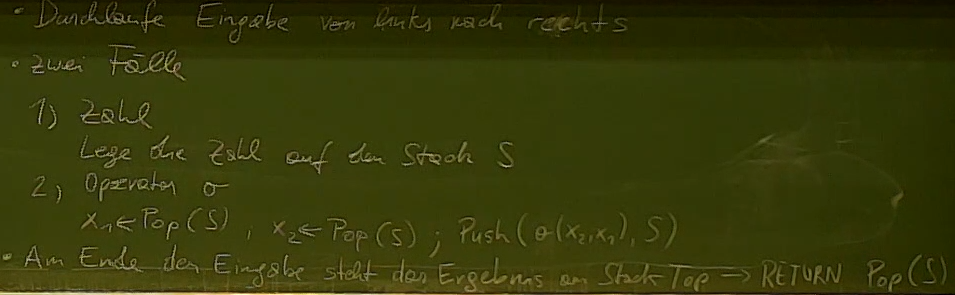 • Durchlaufe Eingabe von links nach rechts
• zwei Fälle
1) Zahl
Lege die Zahl auf den Stack S
2) Operator σ
x₁ ← Pop(S), x₂ ← Pop(S); Push(σ(x₂,x₁), S)
• Am Ende der Eingabe steht das Ergebnis am Stack Top → RETURN Pop(S)